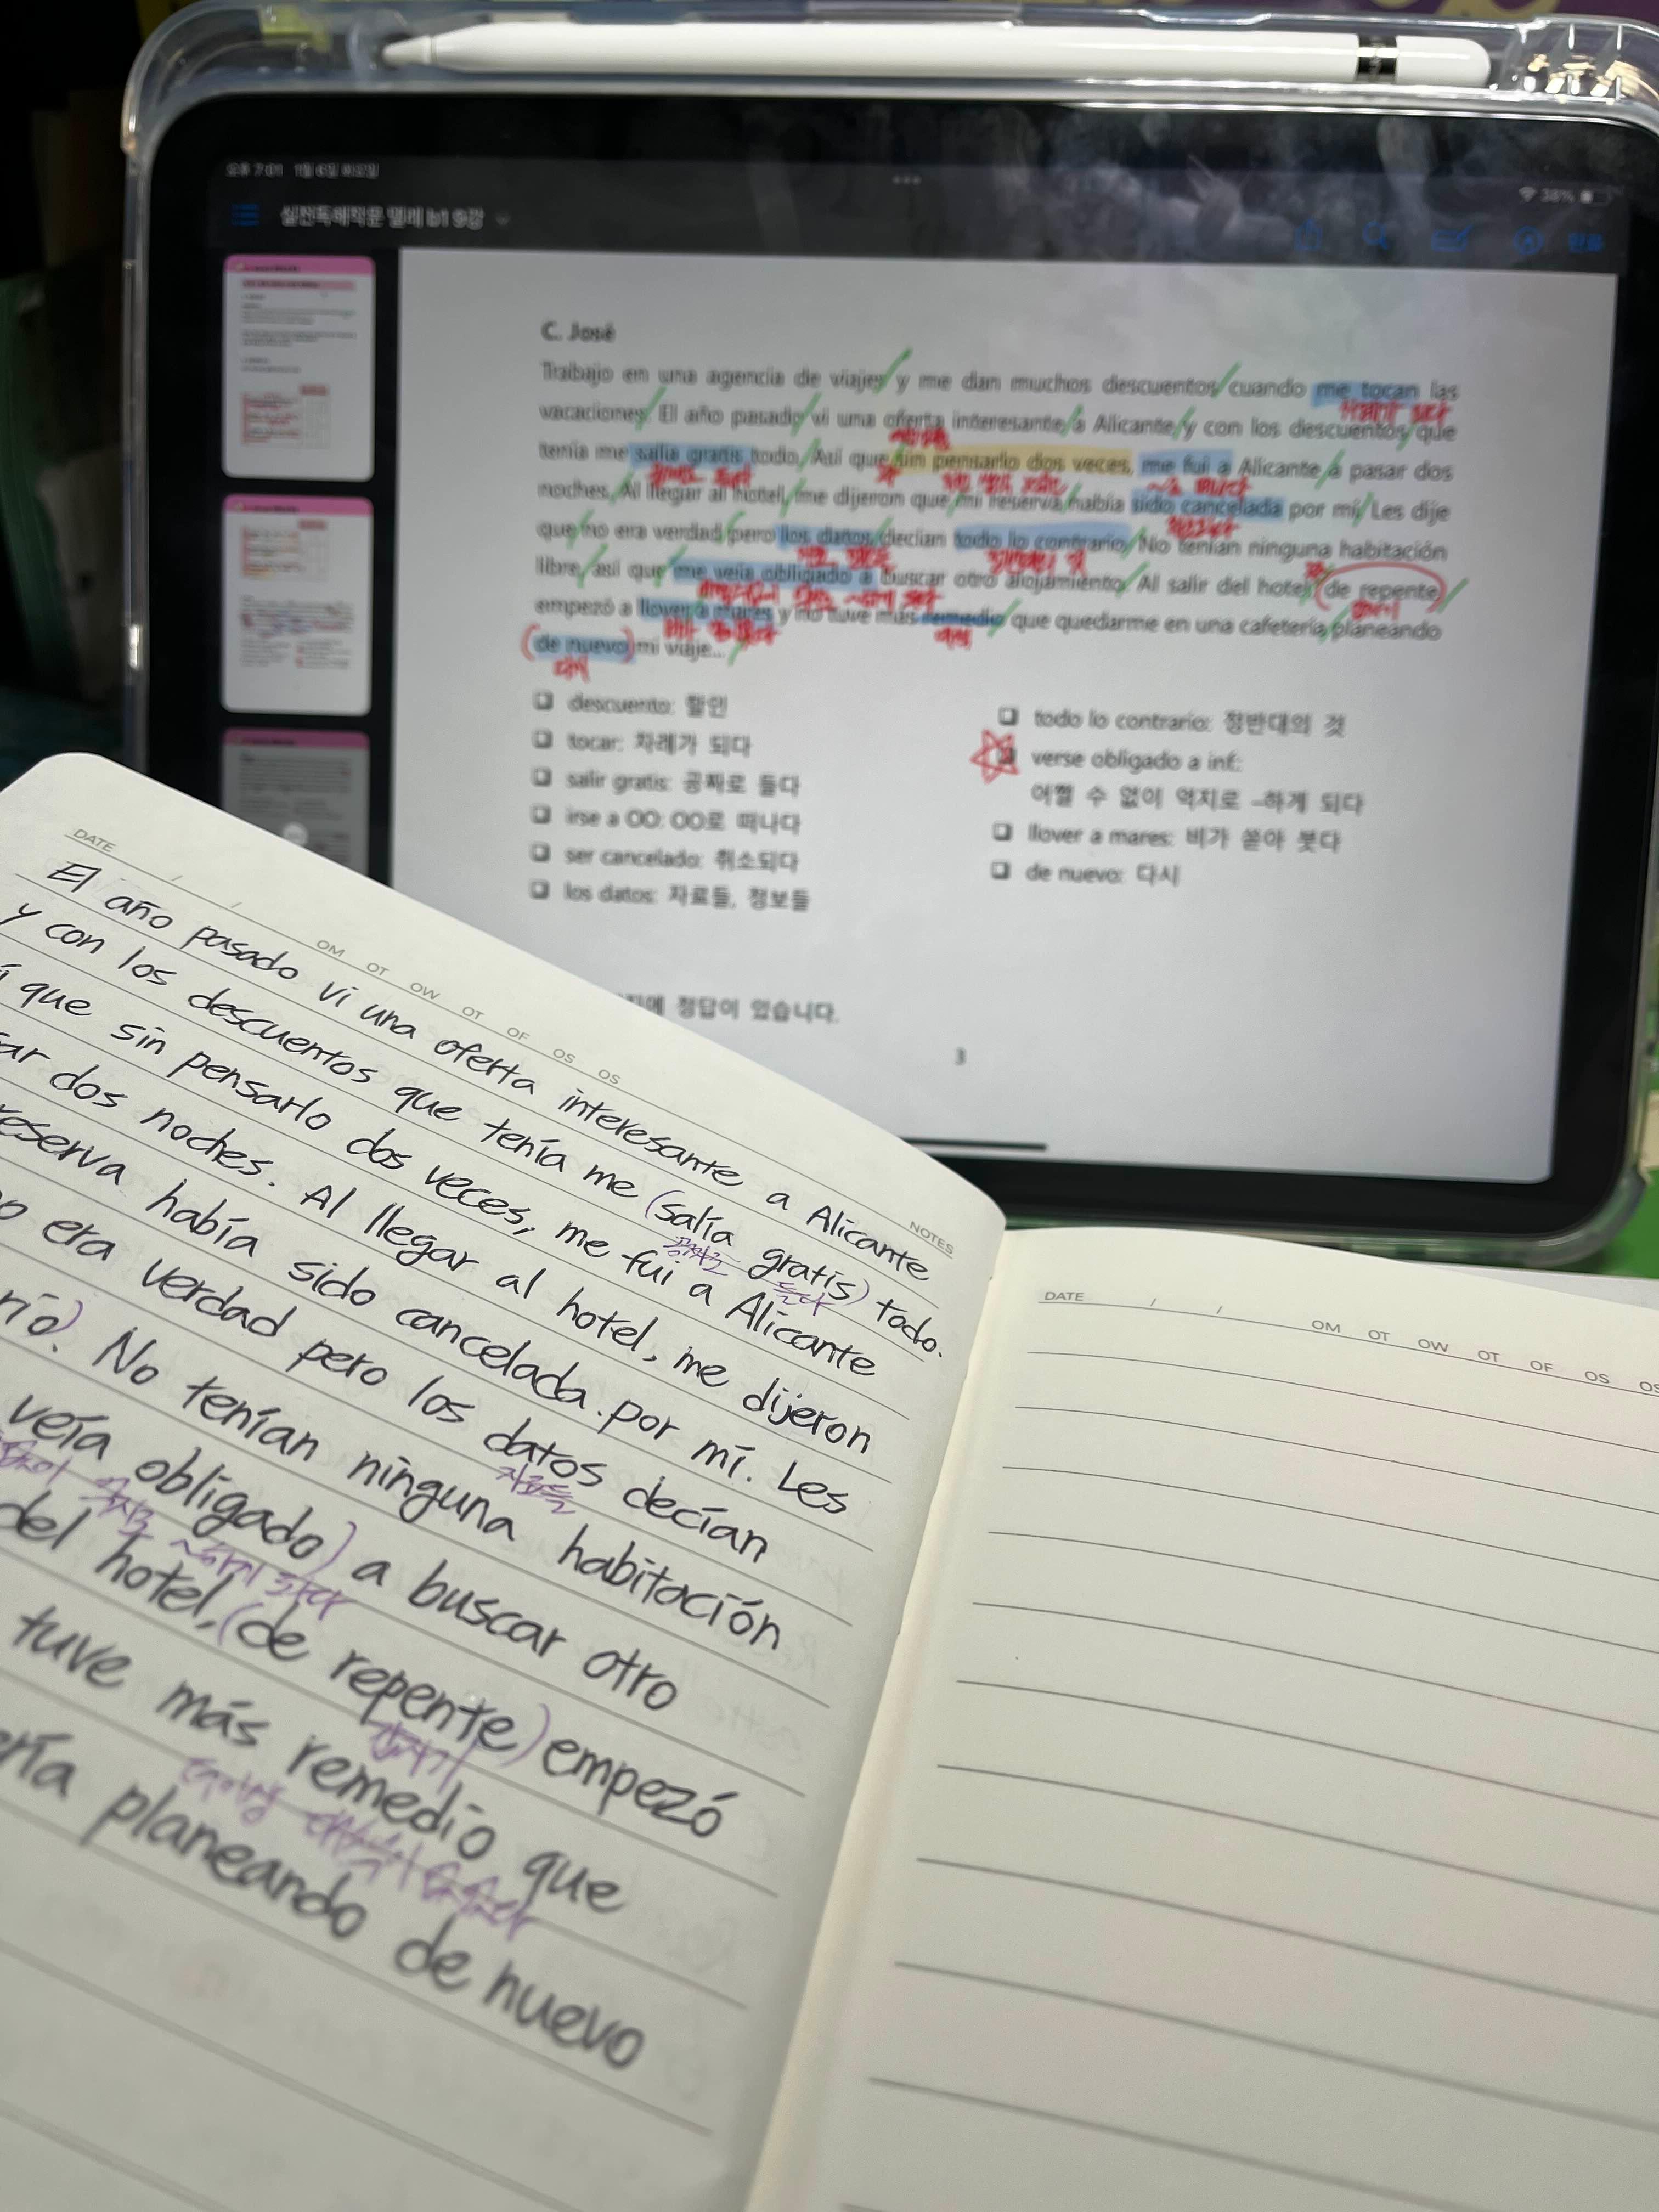 오후 7:01 1월 6일 화요일
38%
실전독해작문 델레 b1 9강
완료
C. José
Trabajo en una agencia de viajes y me dan muchos descuentos cuando me tocan las
vacaciones. El año pasado vi una oferta interesante a Alicante y con los descuentos que
tenía me salía gratis todo. Así que sin pensarlo dos veces, me fui a Alicante a pasar dos
noches. Al llegar al hotel, me dijeron que mi reserva había sido cancelada por mí. Les dije
que no era verdad pero los datos decían todo lo contrario. No tenían ninguna habitación
libre, así que me veía obligado a buscar otro alojamiento. Al salir del hotel, de repente
empezó a llover a mares y no tuve más remedio que quedarme en una cafetería planeando
de nuevo mi viaje...
다시
descuento: 할인
tocar: 차례가 되다
salir gratis: 공짜로 들다
irse a OO: OO로 떠나다
ser cancelado: 취소되다
los datos: 자료들, 정보들
todo lo contrario: 정반대의 것
verse obligado a inf.:
어쩔 수 없이 억지로 –하게 되다
llover a mares: 비가 쏟아 붓다
de nuevo: 다시
정답이 있습니다.
3
DATE / /
OM OT OW OT OF OS OS
NOTES
El año pasado vi una oferta interesante a Alicante
y con los descuentos que tenía me (salía gratis) todo.
공짜로 들다
que sin pensarlo dos veces, me fui a Alicante
dos noches. Al llegar al hotel, me dijeron
reserva había sido cancelada por mí. Les
era verdad pero los datos decían
자료들
No tenían ninguna habitación
veía obligado) a buscar otro
억지로 ~하게 되다
del hotel, (de repente) empezó
갑자기
tuve más remedio que
planeando de nuevo
DATE / /
OM OT OW OT OF OS OS